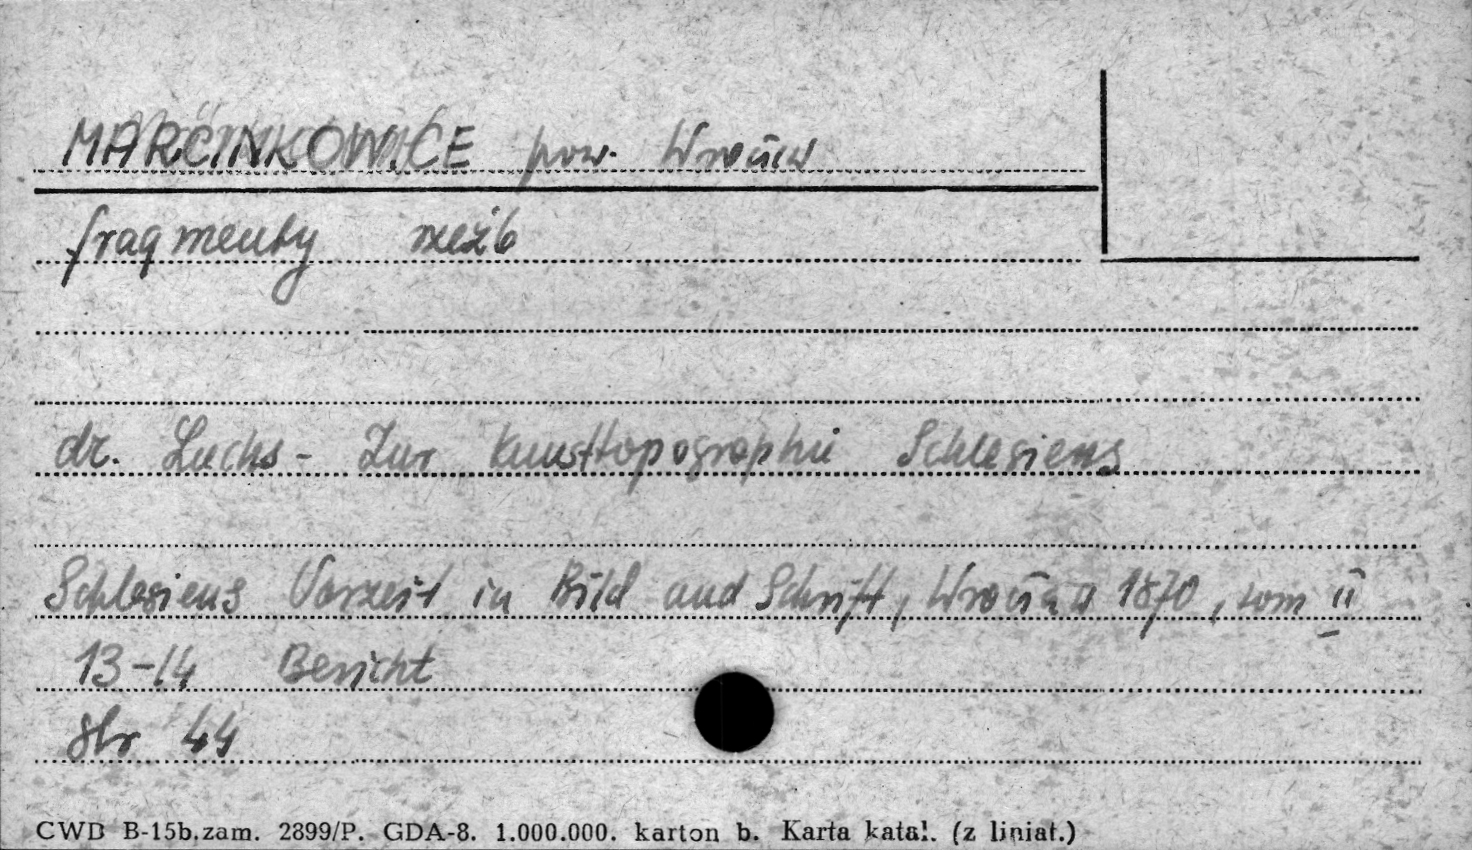 MARCINKOWICE pow. Wrocław
fragmenty rzeźb
dr. Luchs - Zur Kunsttopographie Schlesiens
Schlesiens Vorzeit in Bild und Schrift, Wrocław 1870, tom II
13-14 Bericht
str 44
CWD B-15b.zam. 2899/P. GDA-8. 1.000.000. karton b. Karta katal. (z liniat.)